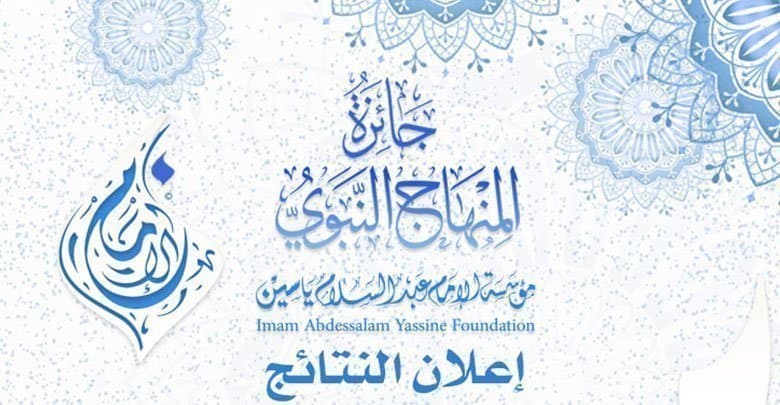 جَائِزَةُ
المِنْهَاجِ النَّبَوِيِّ
مؤسسة الإمام عبد السلام ياسين
Imam Abdessalam Yassine Foundation
إعلان النتائج
الإمام